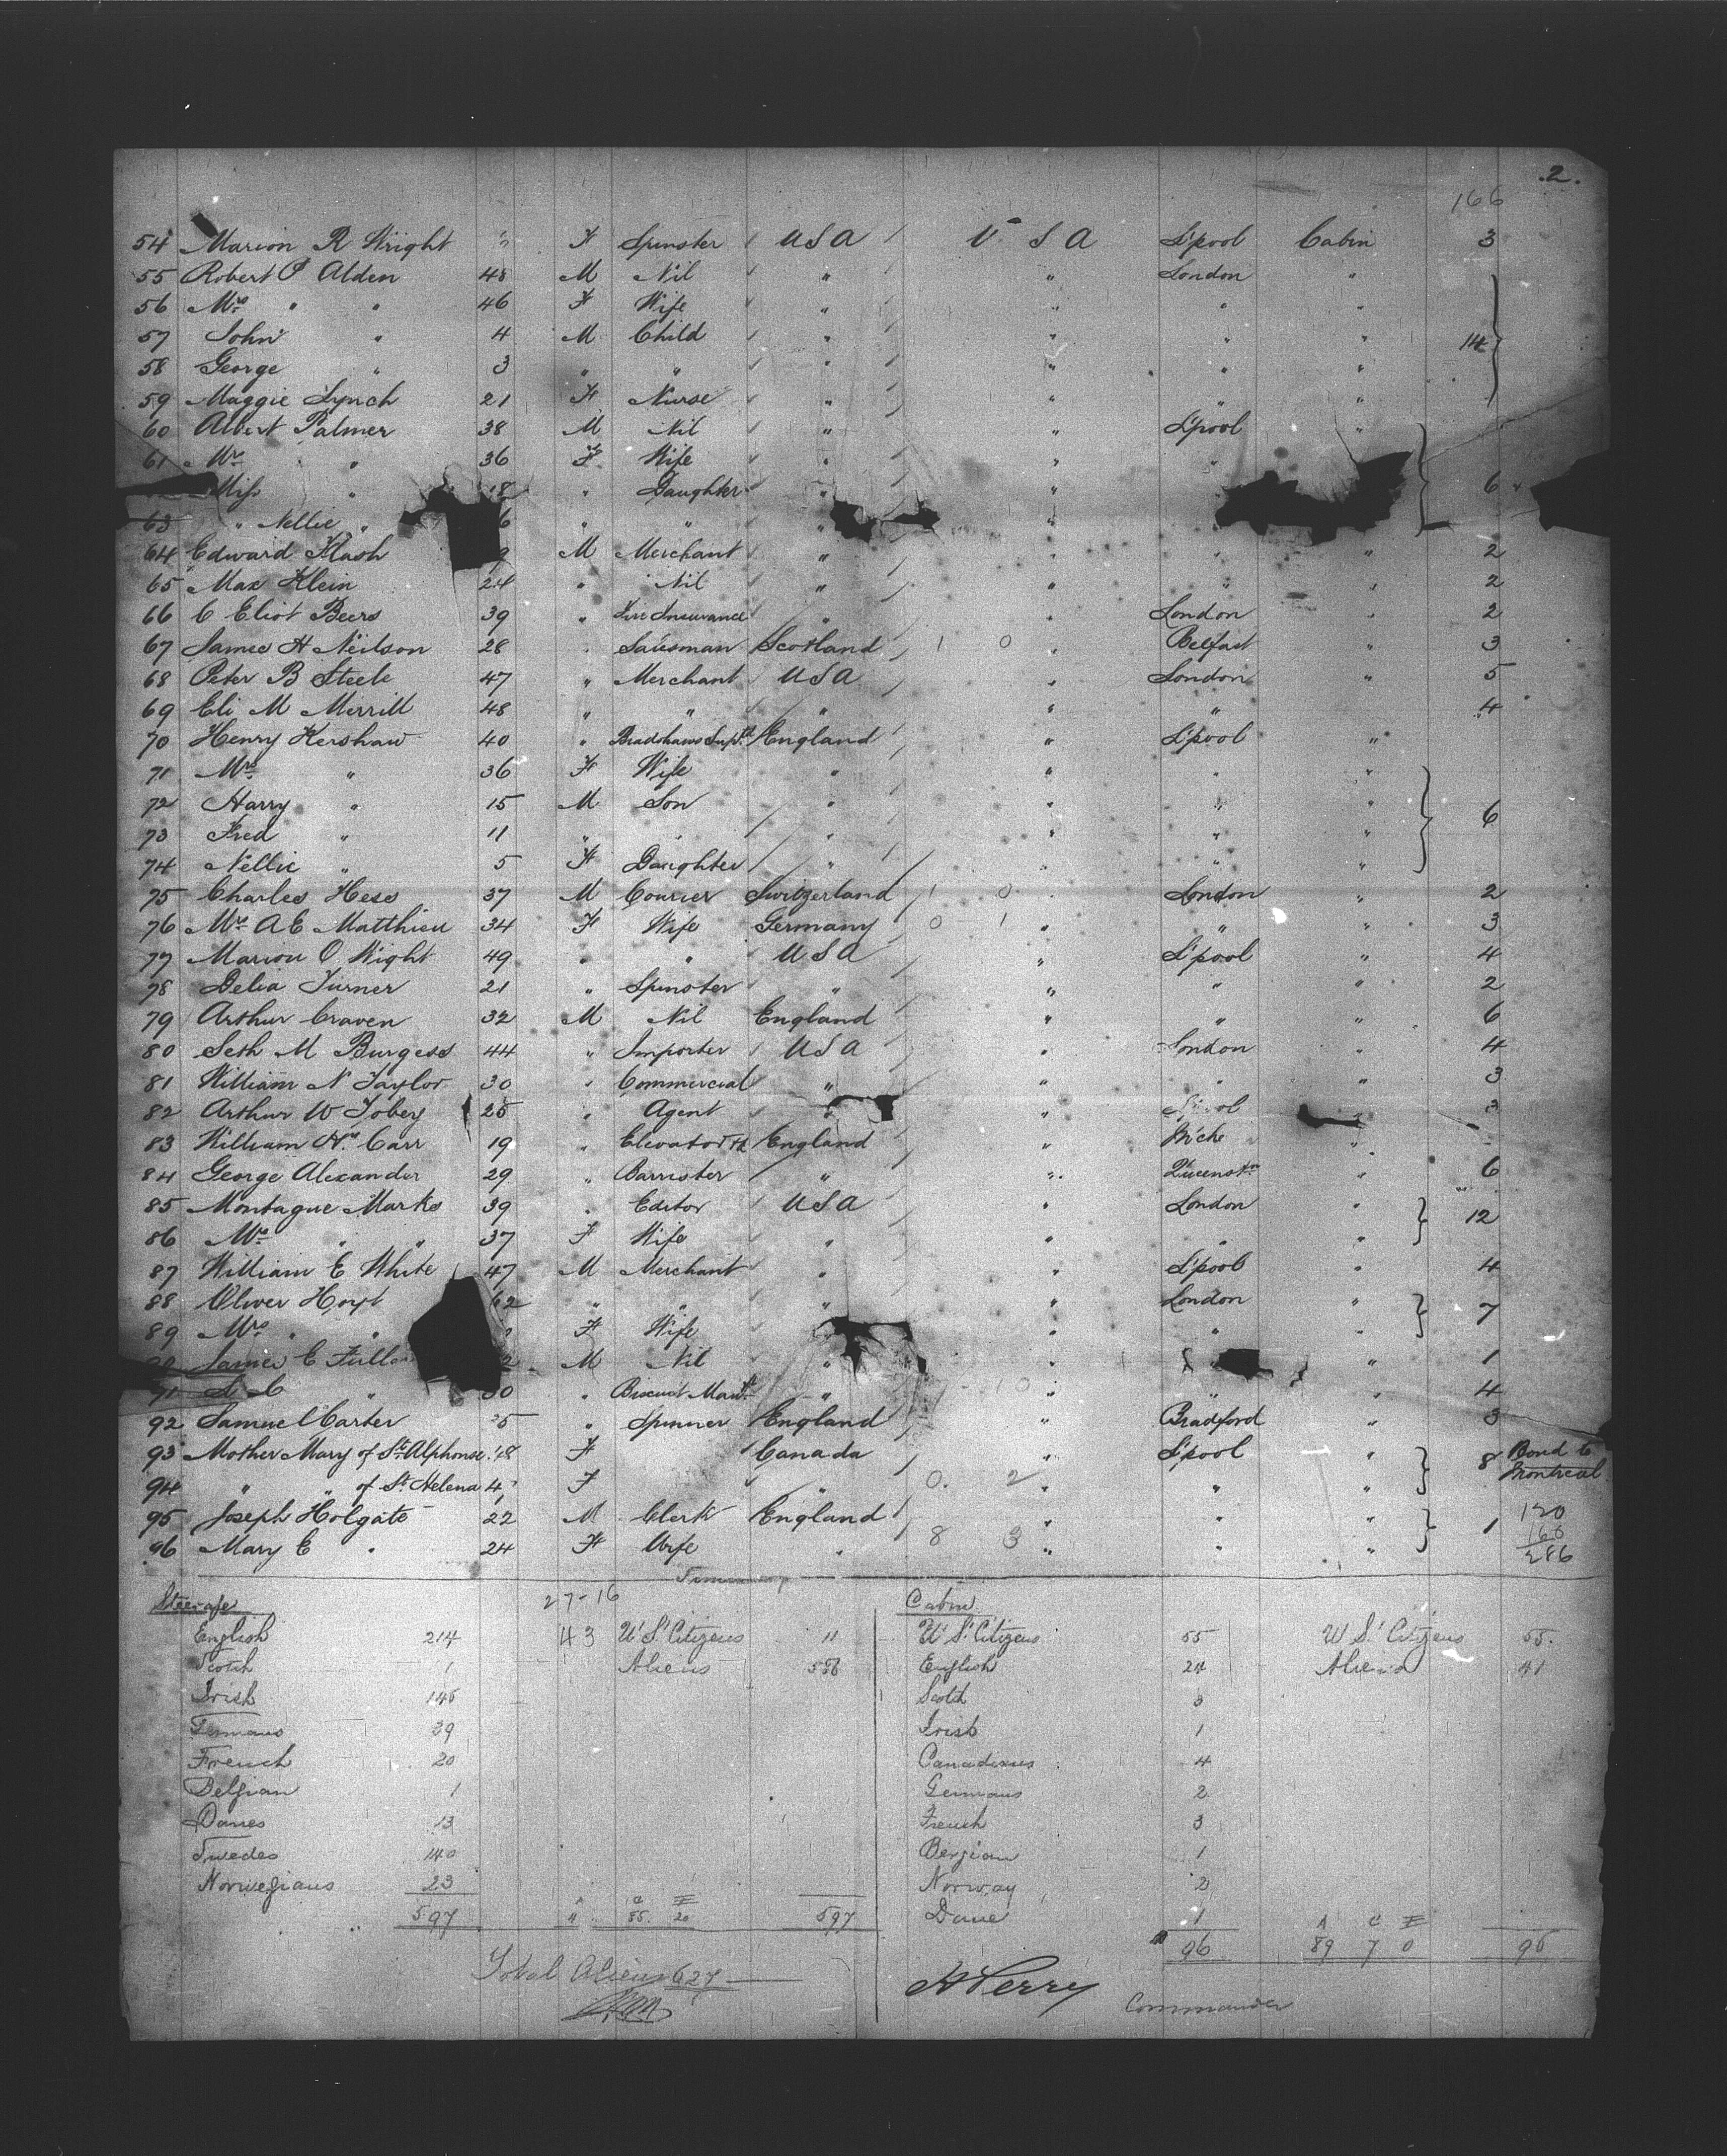 .2.
166
54 Marion R Wright " F Spinster USA U S A L'pool Cabin 3
55 Robert P Alden 48 M Nil " " London "
56 Mrs " " 46 F Wife " " " "
57 John " 4 M Child " " " " 14
58 George " 3 " " " " " "
59 Maggie Lynch 21 F Nurse " " " "
60 Albert Palmer 38 M Nil " " L'pool "
61 Mrs " 36 F Wife " " "
Miss " 18 " Daughter " " 6
63 " Nellie " 6 " " " "
64 Edward Flash 9 M Merchant " " " " 2
65 Max Klein 24 " Nil " " " " 2
66 C Eliot Beers 39 " Fire Insurance " " London " 2
67 James H Neilson 28 " Salesman Scotland 1 0 " Belfast " 3
68 Peter B Steele 47 " Merchant USA " London " 5
69 Eli M Merrill 48 " " " " " 4
70 Henry Kershaw 40 " Bradshaws Supt England " L'pool "
71 Mrs " 36 F Wife " " " "
72 Harry " 15 M Son " " " " 6
73 Fred " 11 " " " " " "
74 Nellie " 5 F Daughter " " " "
75 Charles Hess 37 M Courier Switzerland 1 0 London " 2
76 Mrs A E Matthieu 34 F Wife Germany 0 1 " " " 3
77 Marion O Wight 49 " " USA " L'pool " 4
78 Delia Turner 21 " Spinster " " " " 2
79 Arthur Craven 32 M Nil England " " " 6
80 Seth M Burgess 44 " Importer USA " London " 4
81 William N Taylor 30 " Commercial " " " " 3
82 Arthur W Tobey 25 " Agent " " L'pool 3
83 William Hy Carr 19 " Elevator England "
84 George Alexander 29 " Barrister " " Queenstn " 6
85 Montague Marks 39 " Editor USA " London " 12
86 Mrs " " 37 F Wife " " " "
87 William E White 47 M Merchant " " L'pool " 4
88 Oliver Hoyt 62 " " " " London " 7
89 Mrs " " " F Wife " " "
James E 2 M Nil " " " 1
91 " 30 " Biscuit Manft " 1 0 " " " 4
92 Samuel Carter 35 " Spinner England " Bradford " 3
93 Mother Mary of St Alphonse 48 F Canada " L'pool " 8 Bond to Montreal
94 " " of St Helena 4 F " 0. 2 " " "
95 Joseph Holgate 22 M Clerk England " " " 1 120
96 Mary E " 24 F Wife " 8 3 " " " 166
286
Summary
Steerage 27-16 Cabin
English 214 43 U.S. Citizens 11 U.S. Citizens 55 U.S. Citizens 55.
Scotch 1 Aliens 586 English 24 Aliens 41
Irish 146 Scotch 3
Germans 39 Irish 1
French 20 Canadians 4
Belgian 1 Germans 2
Danes 13 French 3
Swedes 140 Belgian 1
Norwegians 23 Norway 2
A C I Dane 1 A C I
597 11 85 20 597 96 89 7 0 96
Total Aliens 627
H Perry
Commander